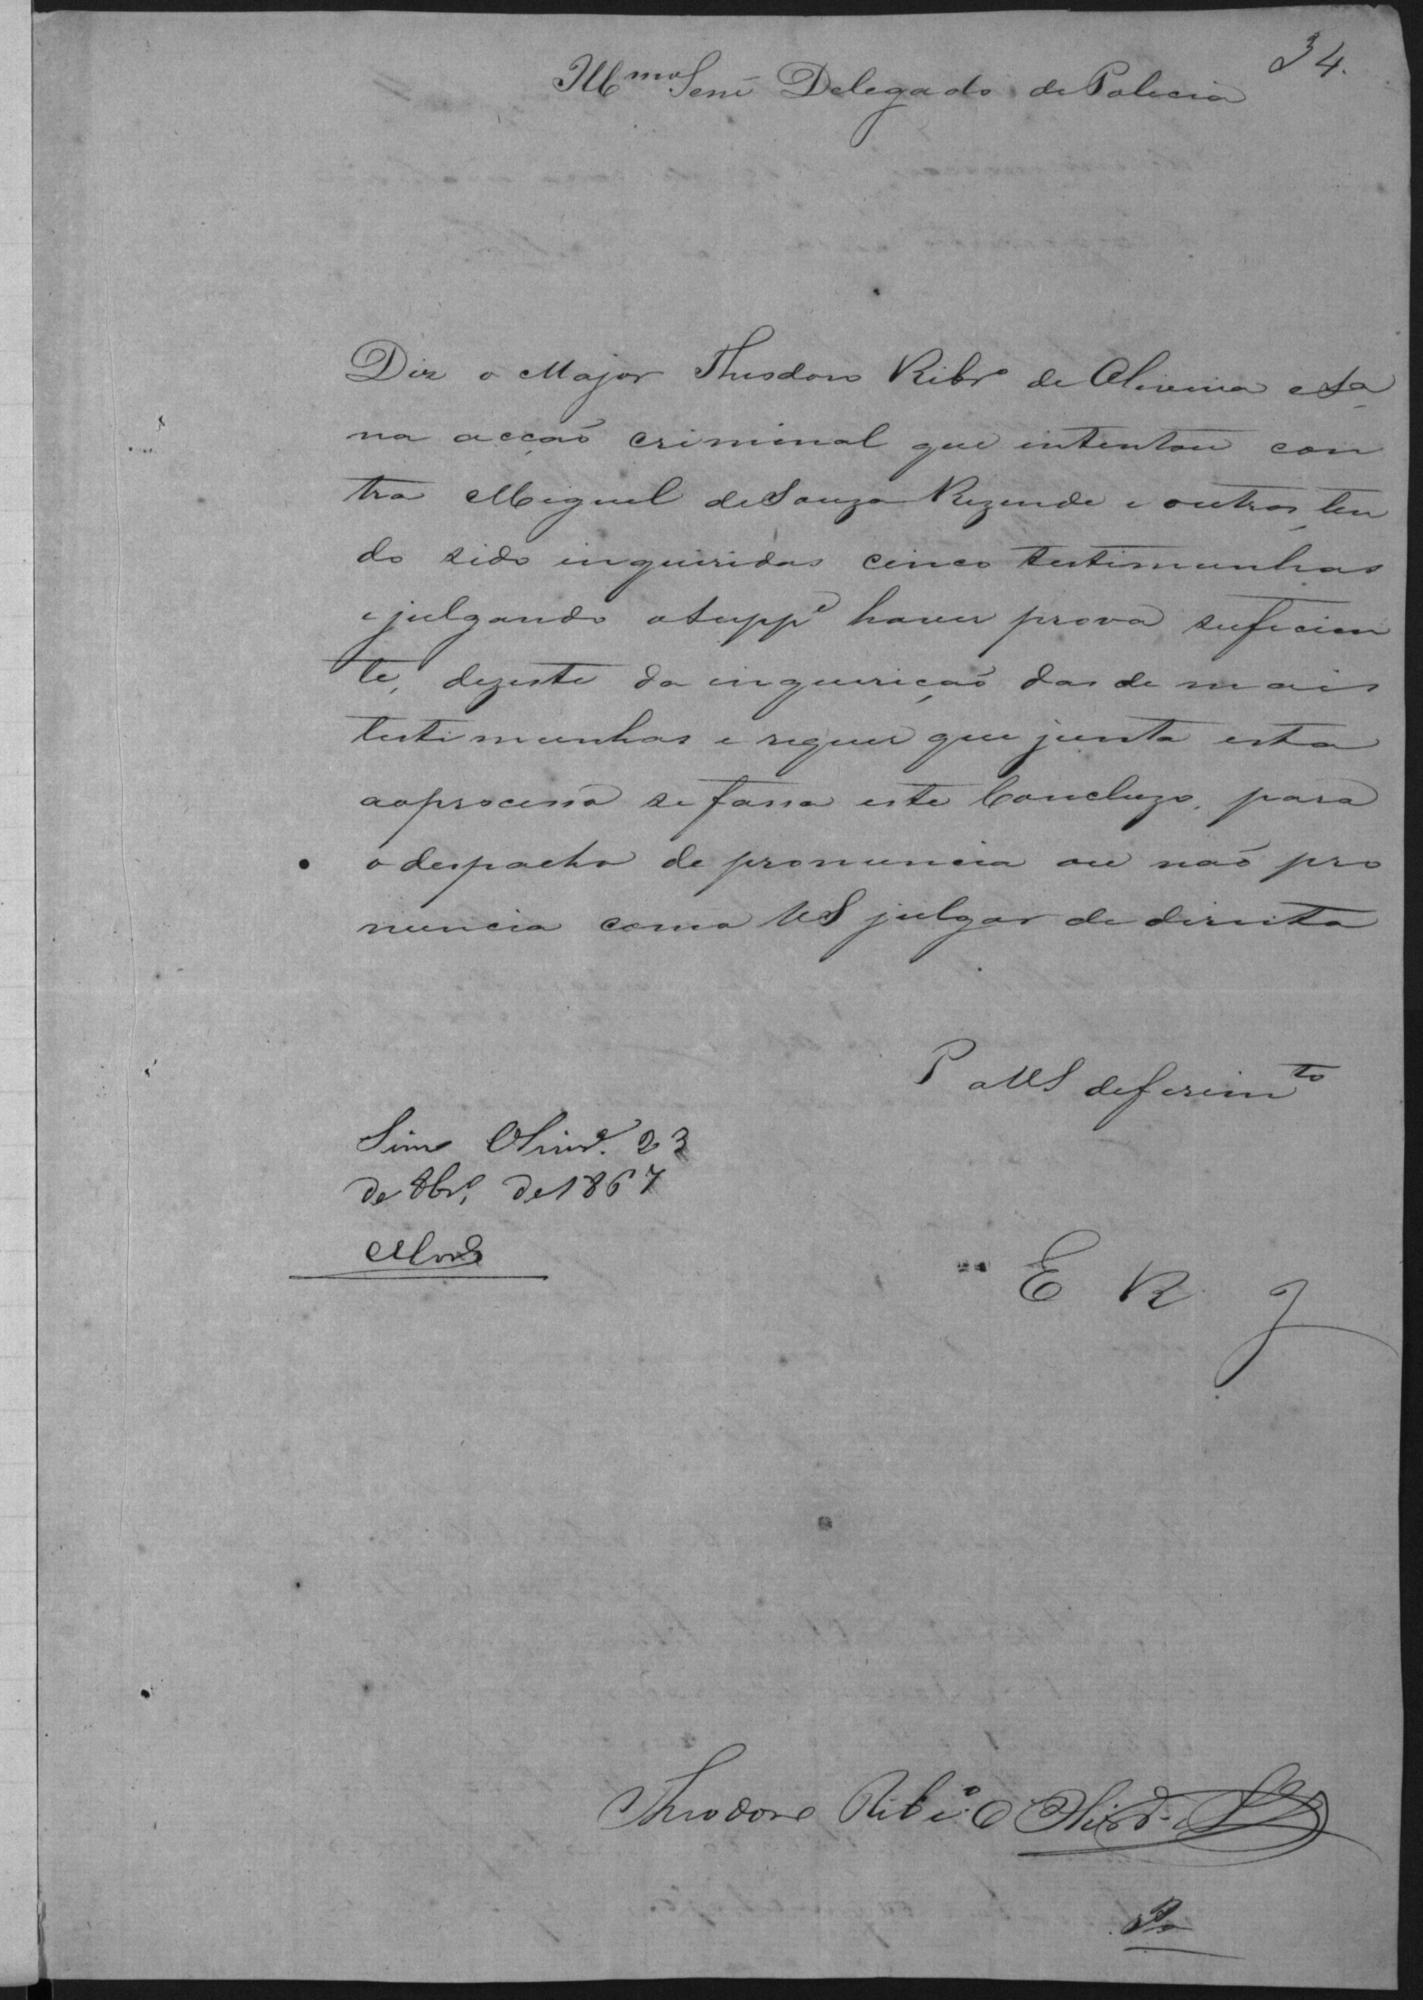 34.
Illmo Senr Delegado de Policia
Diz o Major Theodoro Ribro de Oliveira e Sa
na acção criminal que intentou con
tra Miguel de Souza Rezende e outros, ten
do sido inqueridas cinco testimunhas
e julgando o Suppe haver prova suficien
te, deziste da inquirição das de mais
testimunhas e requer que junta esta
ao processo se fassa este Concluzo, para
o despacho de pronuncia ou não pro
nuncia como VS julgar de direito
P a VS deferimto
Sim Olivra. 23
de 8bro. de 1867
E R J
Theodoro Ribro. d'Olivra. e Sa